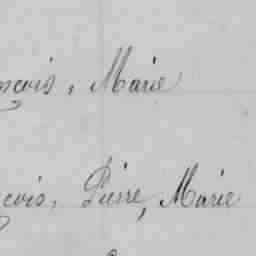 nçois, Marie
çois, Pierre, Marie